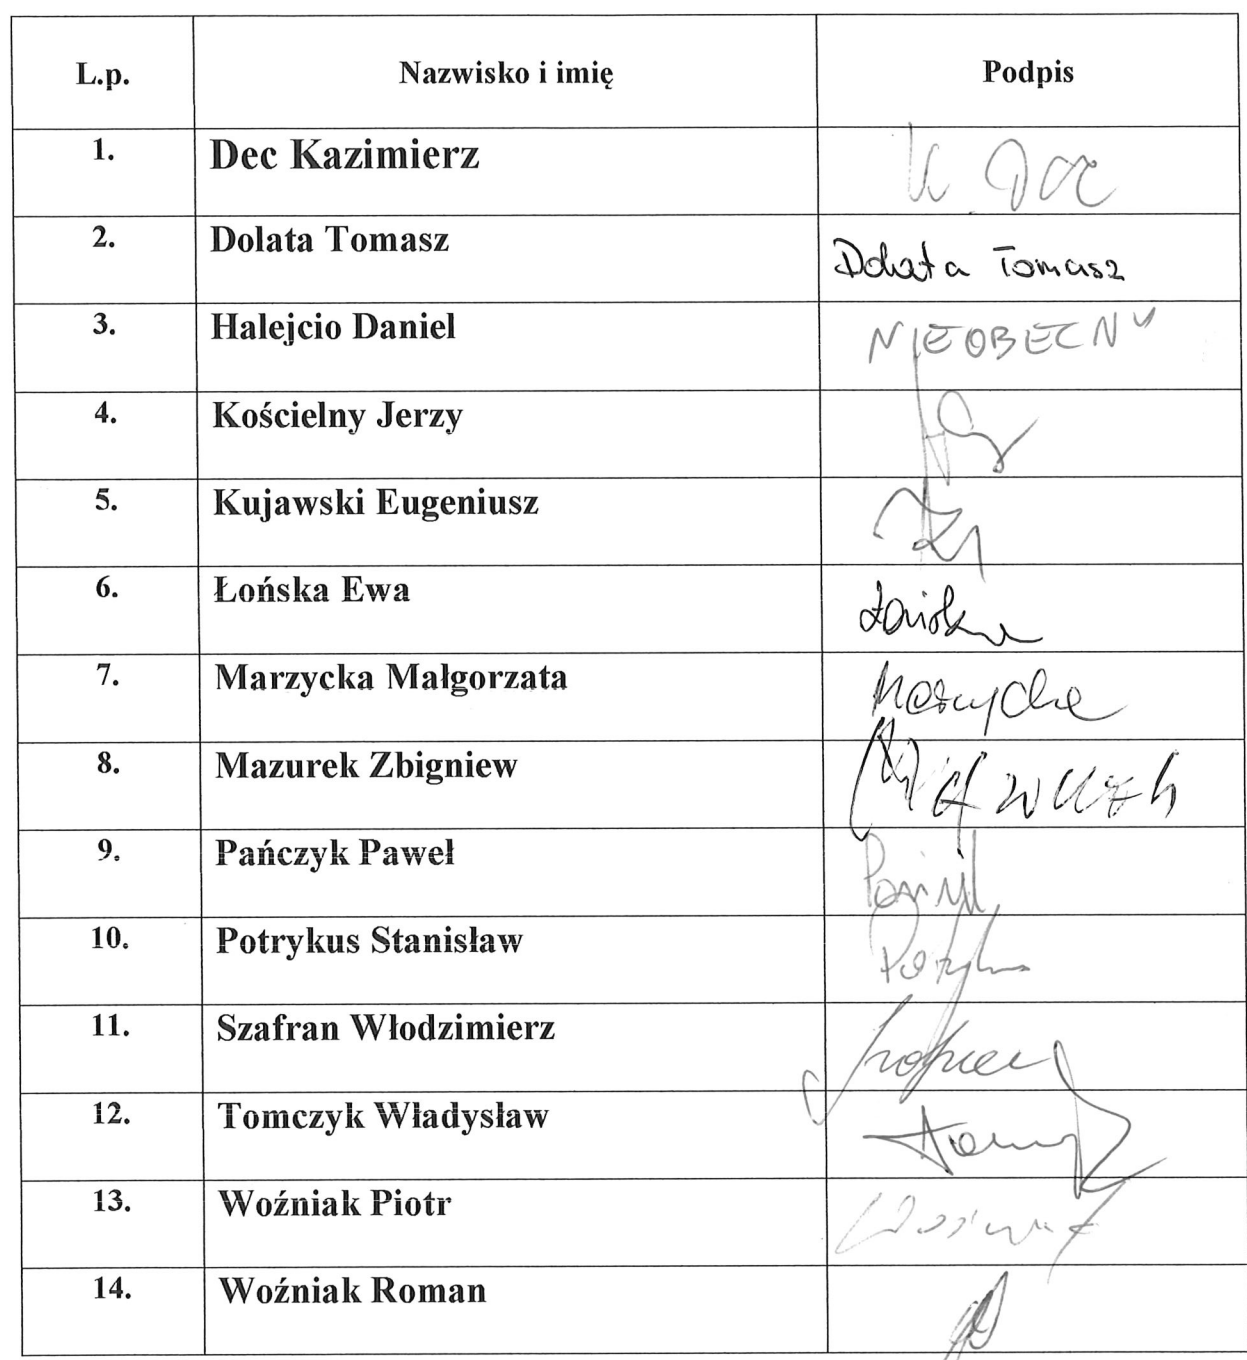 L.p. Nazwisko i imię Podpis
1. Dec Kazimierz K. Dec
2. Dolata Tomasz Dolata Tomasz
3. Halejcio Daniel NIEOBECNY
4. Kościelny Jerzy
5. Kujawski Eugeniusz
6. Łońska Ewa Łońska
7. Marzycka Małgorzata Marzycka
8. Mazurek Zbigniew
9. Pańczyk Paweł
10. Potrykus Stanisław
11. Szafran Włodzimierz
12. Tomczyk Władysław
13. Woźniak Piotr
14. Woźniak Roman